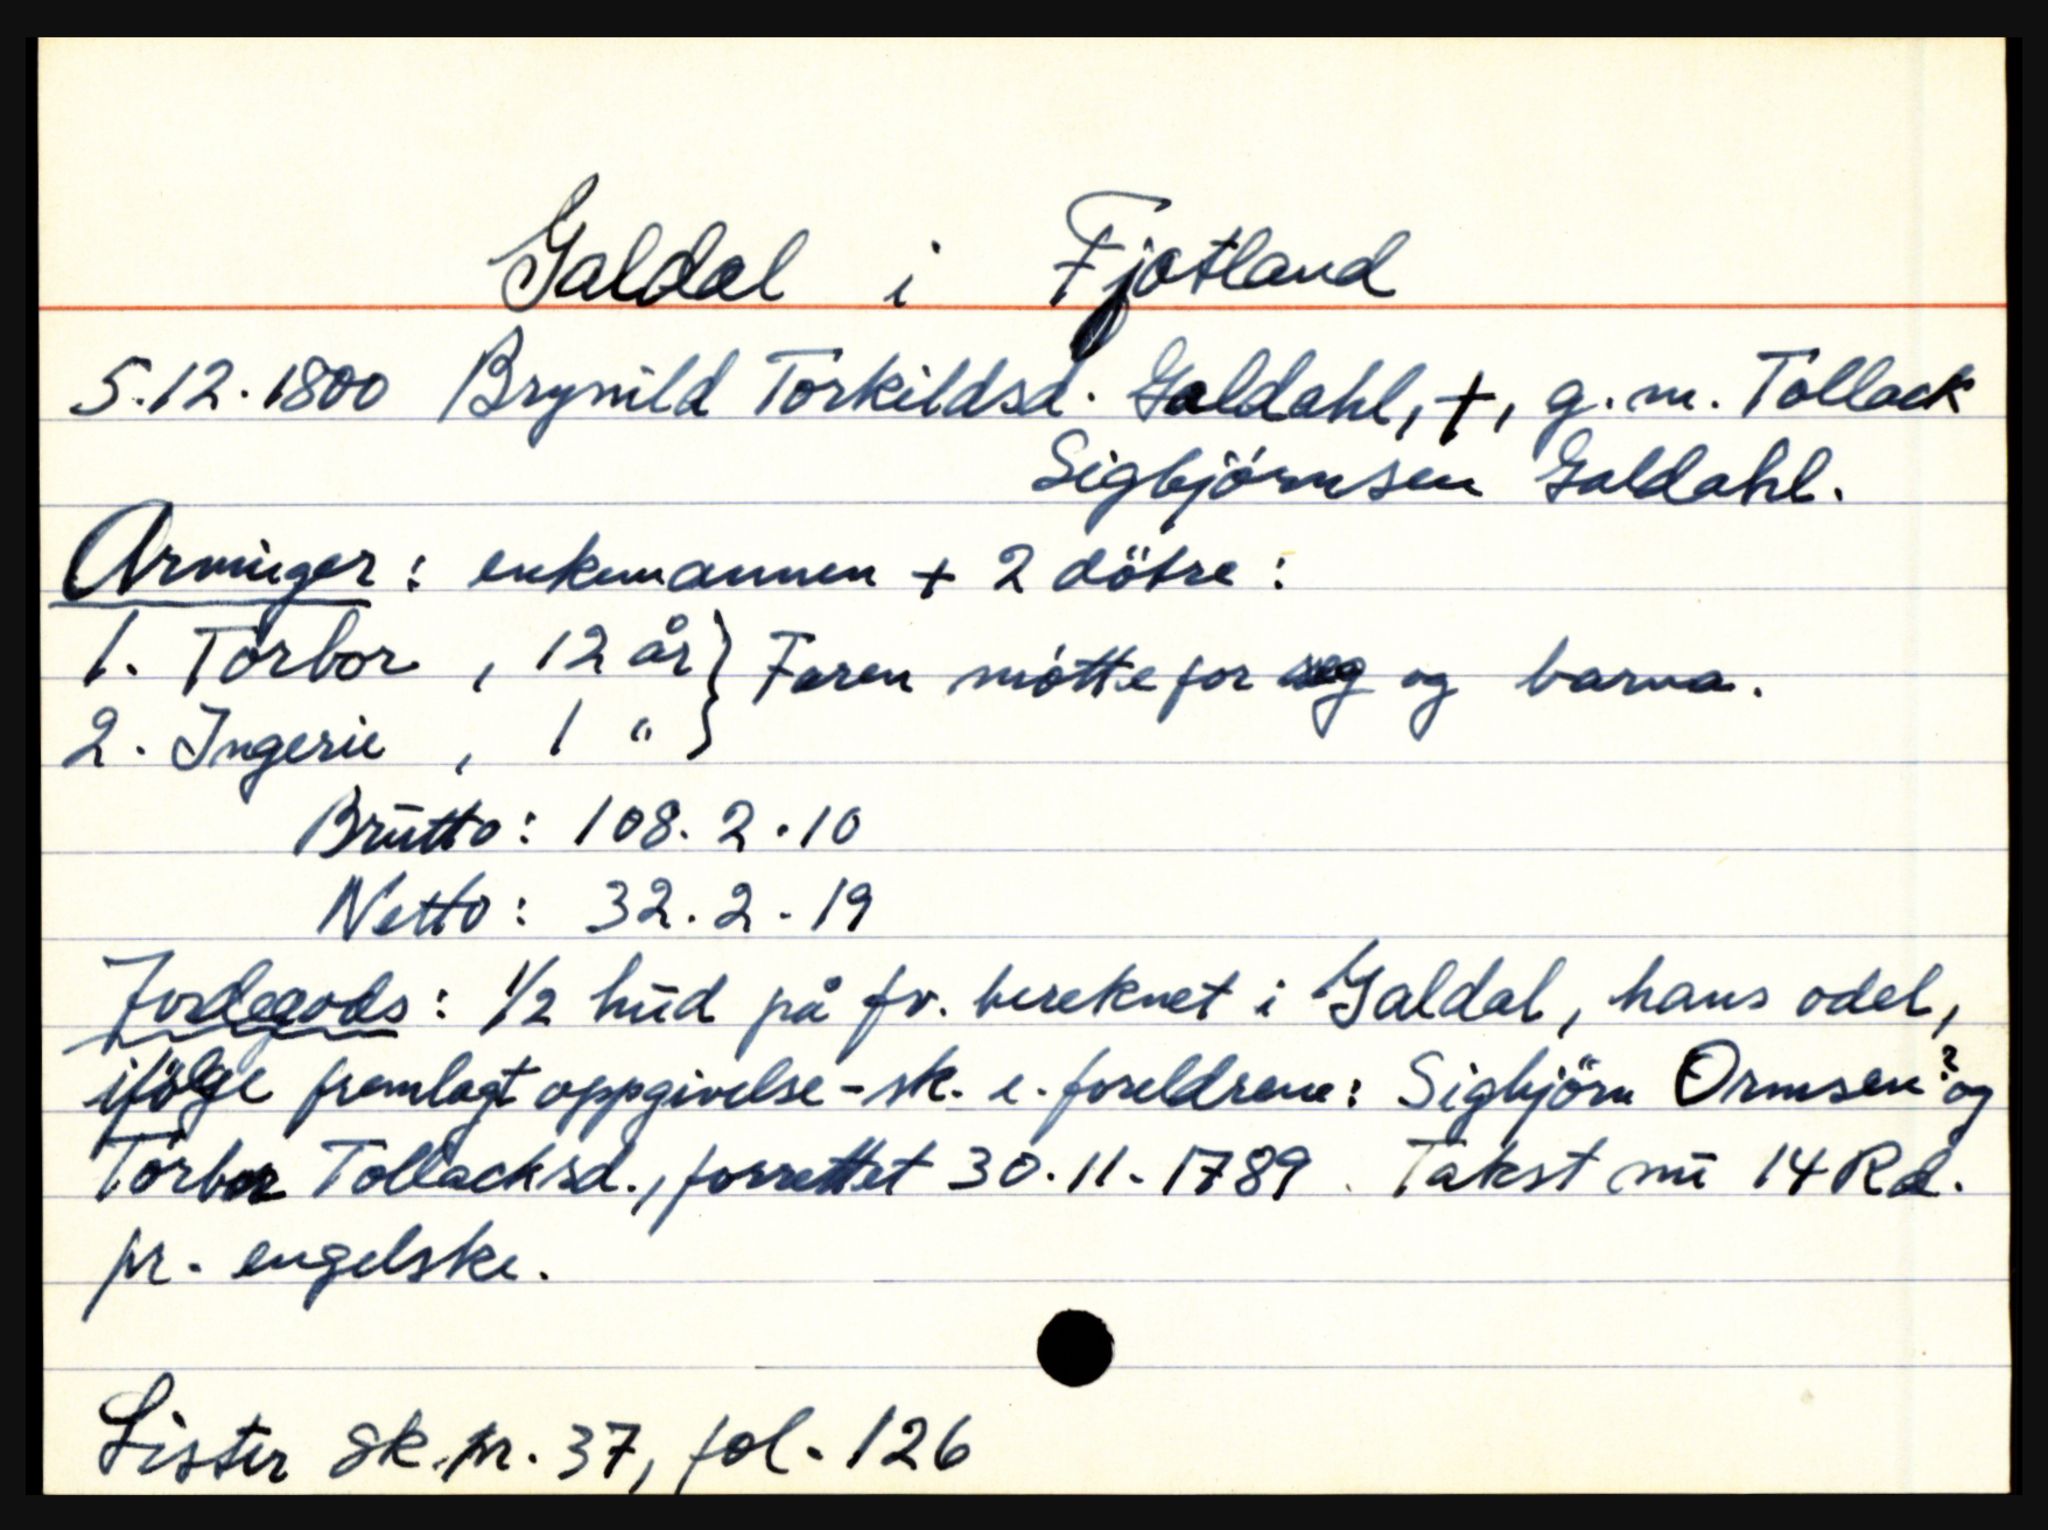 Galdal i Fjotland
5.12.1800 Brynild Torkildsd. Galdahl, †, g.m. Tollack
Sigbjörnsen Galdahl.
Arvinger: enkemannen + 2 dötre:
1. Torbor, 12 år } Faren mötte for seg og barna.
2. Ingerie, 1 " }
Brutto: 108.2.10
Netto: 32.2.19
Jordegods: 1/2 hud på fv. bereknet i Galdal, hans odel,
ifölge fremlagt oppgivelse-sk. e. foreldrene: Sigbjörn Ormsen? og
Torbor Tollacksd., forrettet 30.11.1789. Takst nu 14 Rd.
pr. engelske.
Lister sk.pr. 37, fol. 126